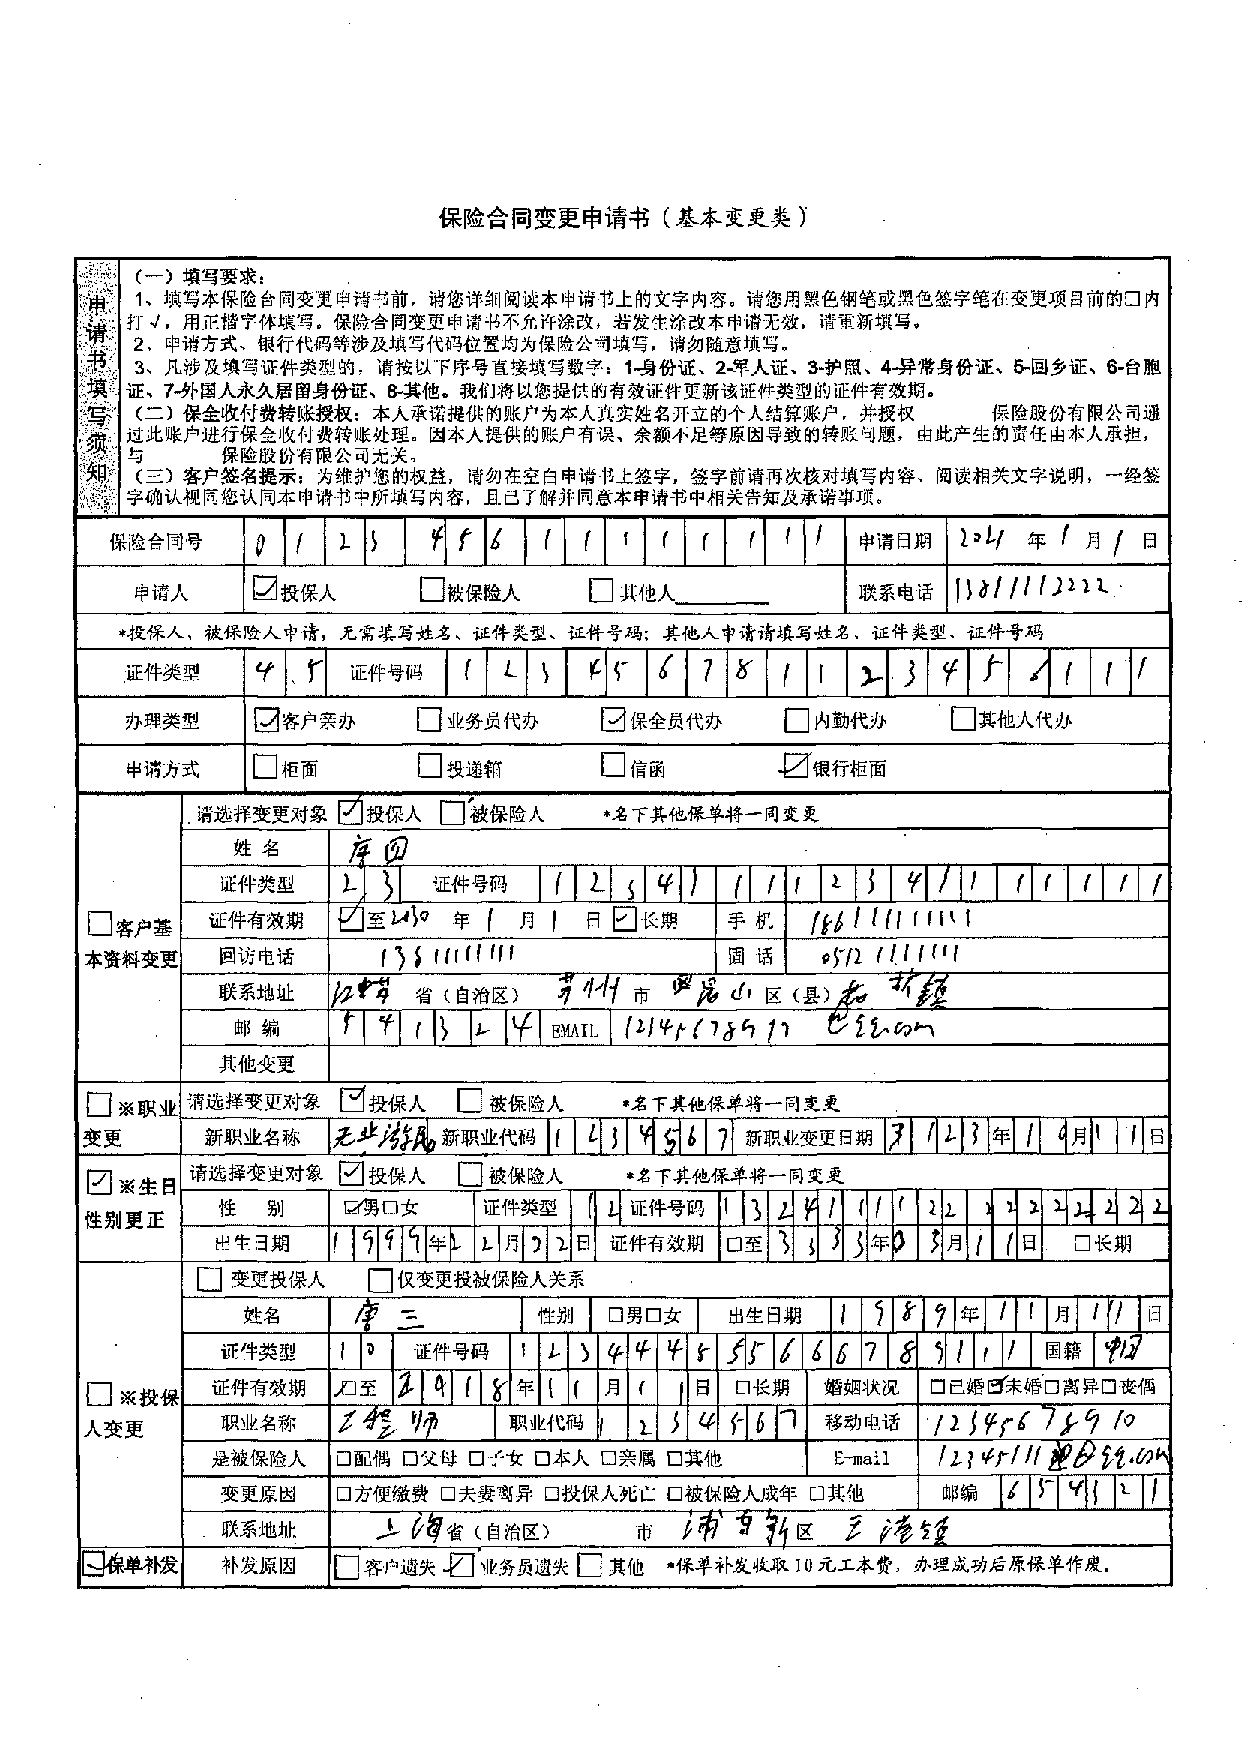 保险合同变更申请书（基本变更类）
申请书填写须知
（一）填写要求：
1、填写本保险合同变更申请书前，请您详细阅读本申请书上的文字内容。请您用黑色钢笔或黑色签字笔在变更项目前的□内
打√，用正楷字体填写。保险合同变更申请书不允许涂改，若发生涂改本申请无效，请重新填写。
2、申请方式、银行代码等涉及填写代码位置均为保险公司填写，请勿随意填写。
3、凡涉及填写证件类型的，请按以下序号直接填写数字：1-身份证、2-军人证、3-护照、4-异常身份证、5-回乡证、6-台胞
证、7-外国人永久居留身份证、8-其他。我们将以您提供的有效证件更新该证件类型的证件有效期。
（二）保全收付费转账授权：本人承诺提供的账户为本人真实姓名开立的个人结算账户，并授权 保险股份有限公司通
过此账户进行保全收付费转账处理。因本人提供的账户有误、余额不足等原因导致的转账问题，由此产生的责任由本人承担，
与 保险股份有限公司无关。
（三）客户签名提示：为维护您的权益，请勿在空白申请书上签字，签字前请再次核对填写内容、阅读相关文字说明，一经签
字确认视同您认同本申请书中所填写内容，且已了解并同意本申请书中相关告知及承诺事项。
保险合同号 0 1 2 3 4 5 6 1 1 1 1 1 1 1 1 申请日期 2021 年 1 月 1 日
申请人 ☑投保人 □被保险人 □其他人 联系电话 13811112222
*投保人、被保险人申请，无需填写姓名、证件类型、证件号码；其他人申请请填写姓名、证件类型、证件号码
证件类型 4 5 证件号码 1 2 3 4 5 6 7 8 1 1 2 3 4 5 6 1 1 1
办理类型 ☑客户亲办 □业务员代办 ☑保全员代办 □内勤代办 □其他人代办
申请方式 □柜面 □投递箱 □信函 ☑银行柜面
□客户基本资料变更
请选择变更对象 ☑投保人 □被保险人 *名下其他保单将一同变更
姓名 李四
证件类型 2 3 证件号码 1 2 3 4 1 1 1 1 2 3 4 1 1 1 1 1 1 1
证件有效期 ☑至2030 年 1 月 1 日 ☑长期 手机 18611111111
回访电话 13611111111 固话 0512 1111111
联系地址 江苏 省（自治区） 苏州 市 昆山 区（县） 镇
邮编 5 4 1 3 2 4 EMAIL @qq.com
其他变更
□※职业变更
请选择变更对象 ☑投保人 □被保险人 *名下其他保单将一同变更
新职业名称 无业游民 新职业代码 1 2 3 4 5 6 7 新职业变更日期 3 1 2 3 年 1 0 月 1 1 日
☑※生日性别更正
请选择变更对象 ☑投保人 □被保险人 *名下其他保单将一同变更
性别 ☑男□女 证件类型 1 2 证件号码 1 3 2 4 1 1 1 1 2 2 2 2 2 2 2 2 2 2
出生日期 1 9 9 9 年 2 2 月 2 2 日 证件有效期 □至 3 3 3 3 年 0 3 月 1 1 日 □长期
□※投保人变更
□变更投保人 □仅变更投被保险人关系
姓名 唐三 性别 □男□女 出生日期 1 9 8 9 年 1 1 月 1 1 日
证件类型 1 0 证件号码 1 2 3 4 4 4 5 5 5 6 6 6 7 8 9 1 1 1 国籍 中国
证件有效期 ☑至 2 0 1 8 年 1 1 月 1 1 日 □长期 婚姻状况 □已婚☑未婚□离异□丧偶
职业名称 工程师 职业代码 1 2 3 4 5 6 7 移动电话 12345678910
是被保险人 □配偶 □父母 □子女 □本人 □亲属 □其他 E-mail 12345111@qq.com
变更原因 □方便缴费 □夫妻离异 □投保人死亡 □被保险人成年 □其他 邮编 6 5 4 3 2 1
联系地址 上海 省（自治区） 市 浦东新 区 三港镇
☑保单补发 补发原因 □客户遗失 ☑业务员遗失 □其他 *保单补发收取10元工本费，办理成功后原保单作废。